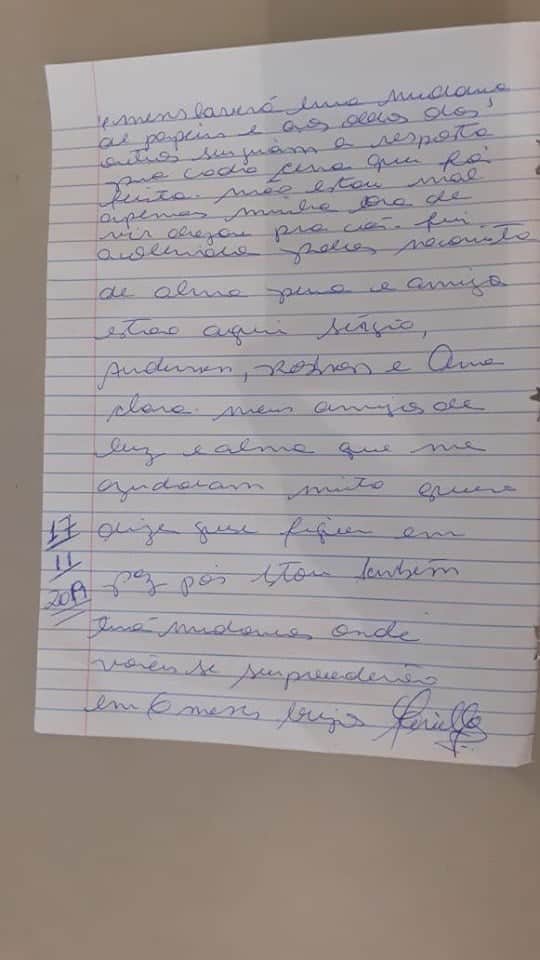 6 meses haverá uma mudança
de papeis e aos olhos dos
outros surgirám a resposta
pra cada cena que foi
feita. não estou mal
apenas minha ora de
vir chegou pra cá. fui
acolhida
de alma pura e amiga
estão aqui Sérgio,
Anderson, e Ana
clara. meus amigos de
luz e alma que me
ajudaram muito quero
dizer que fiquem em
17
11
2019
paz pós estou também
uma mudança onde
vocês se surpreenderão
em 6 meses beijos